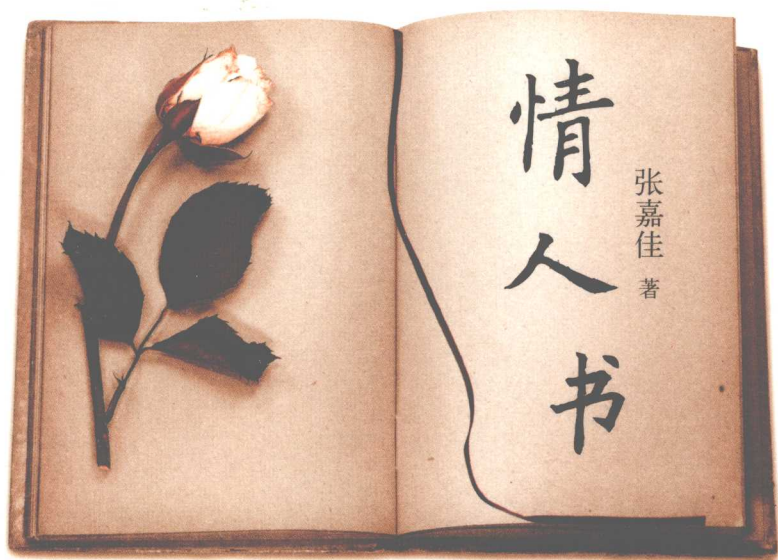 情人书
张嘉佳 著